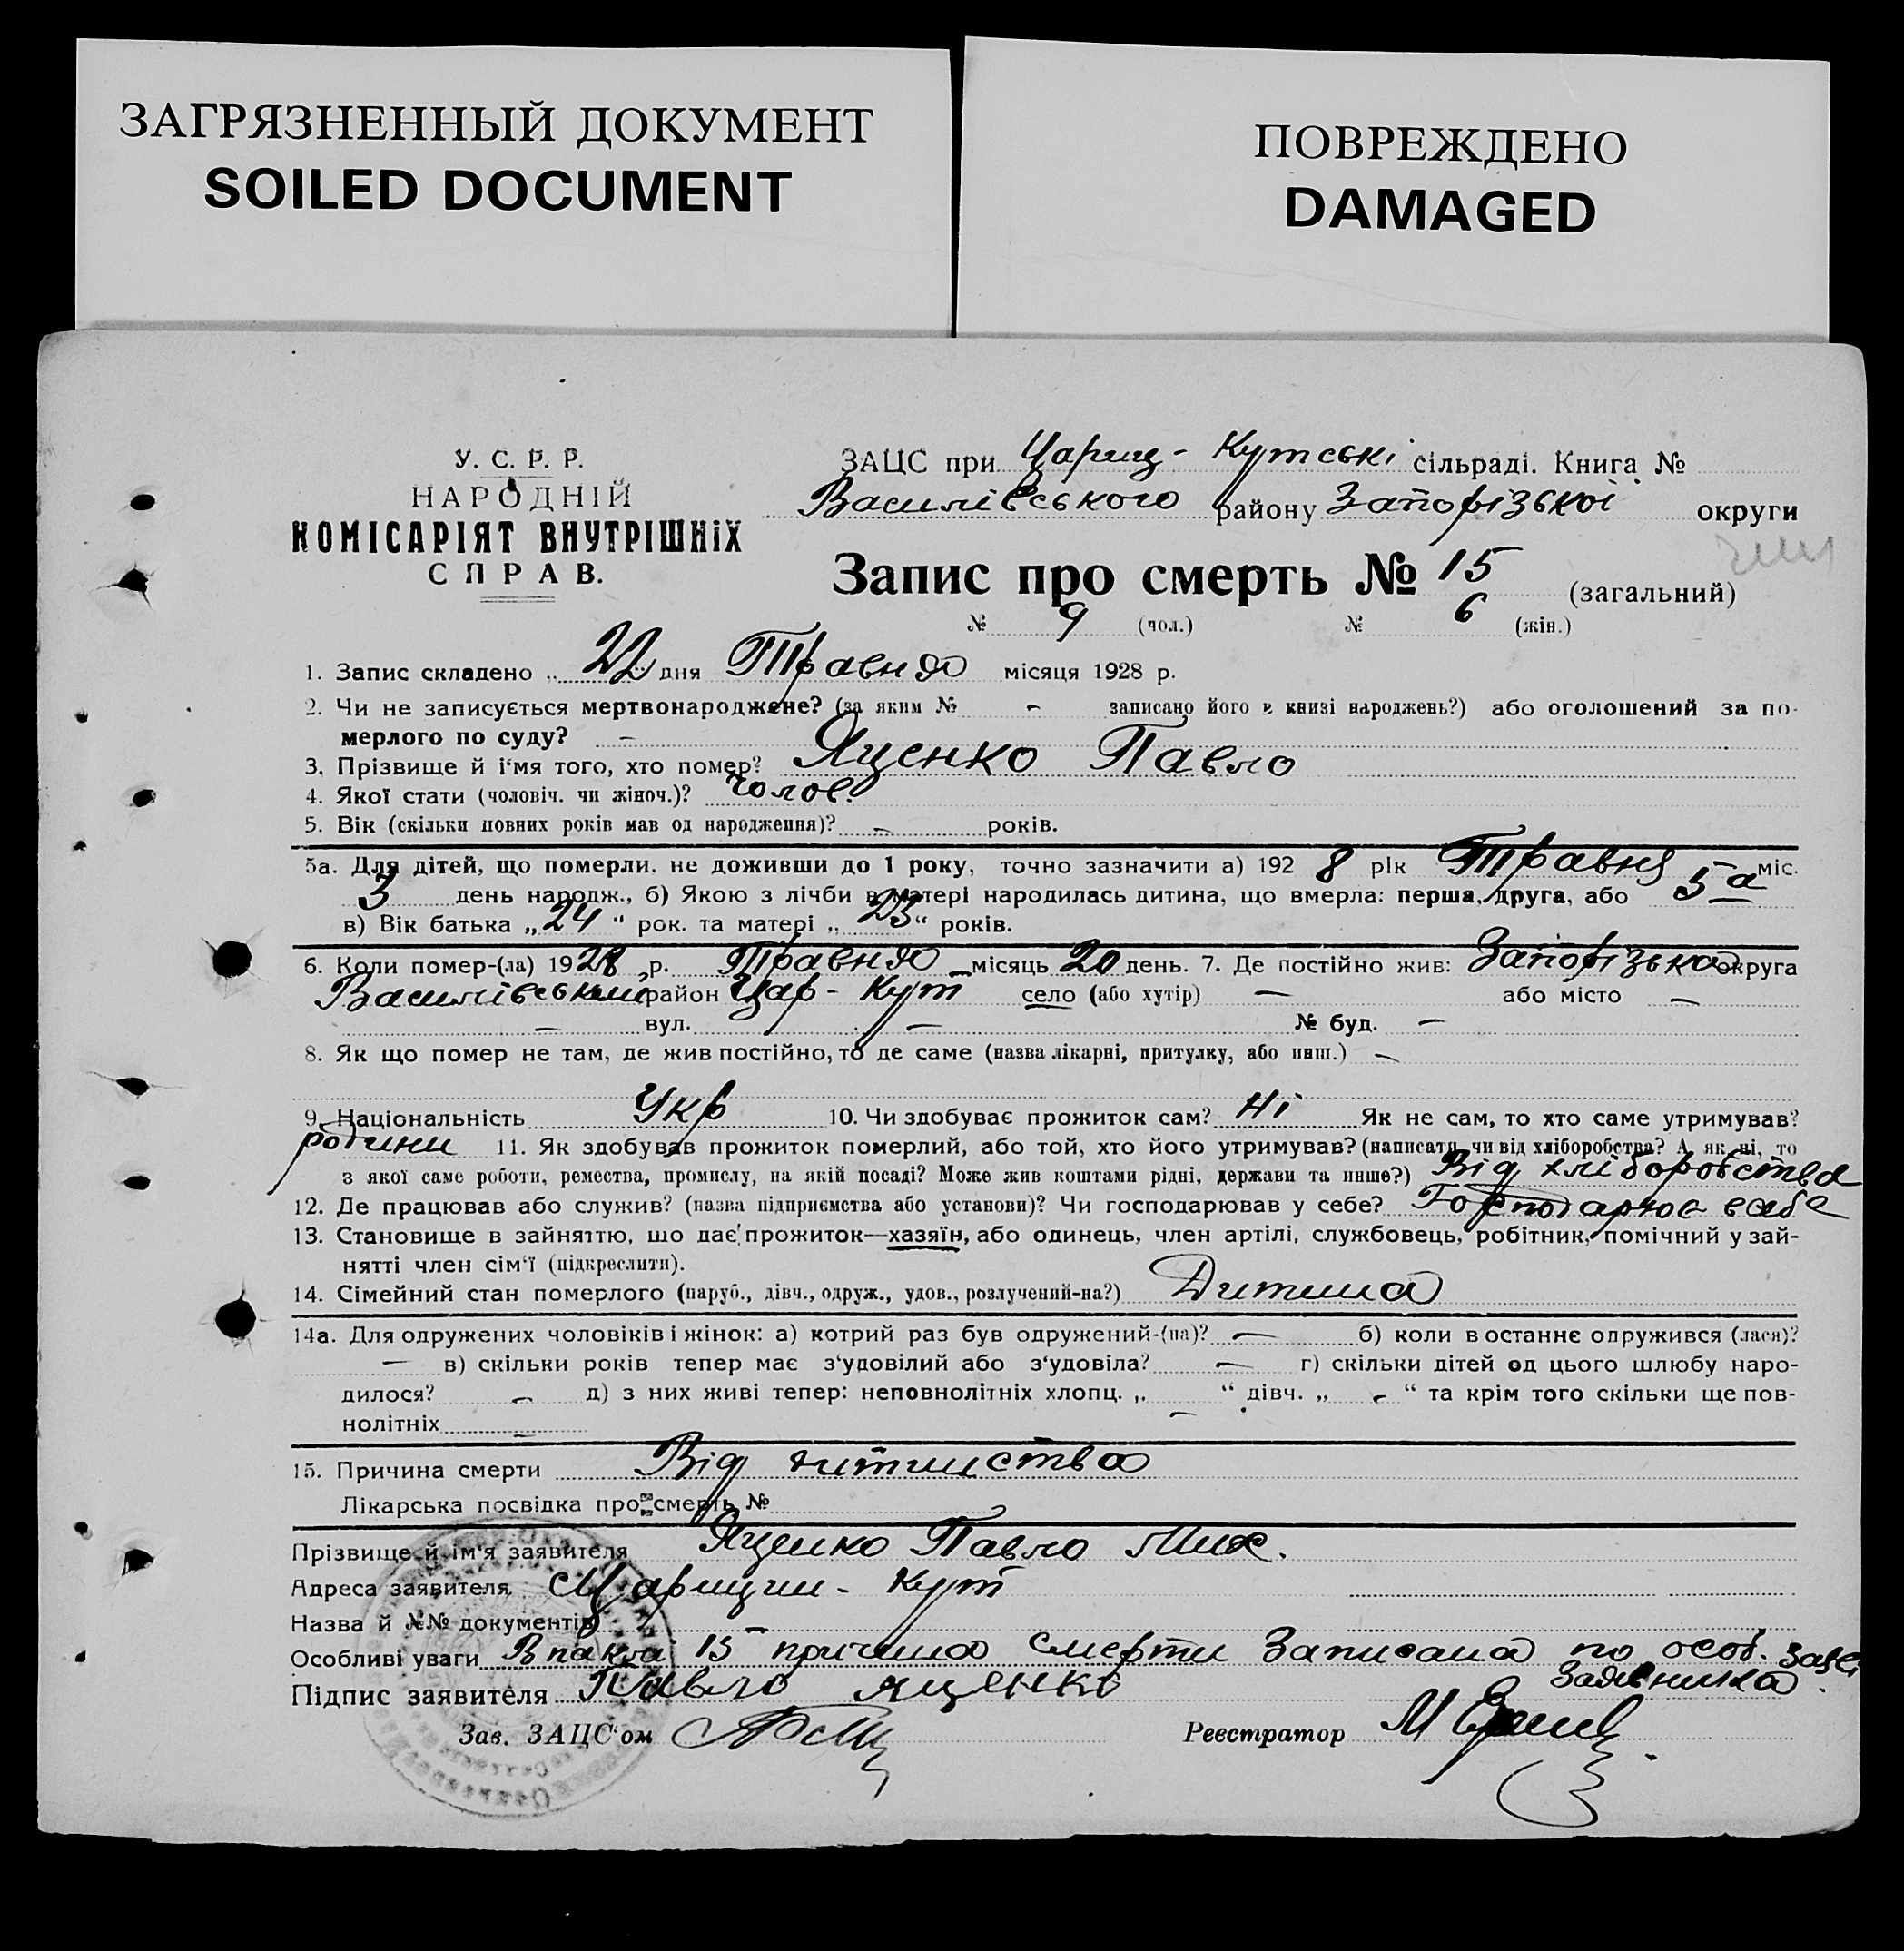 ЗАГРЯЗНЕННЫЙ ДОКУМЕНТ
SOILED DOCUMENT
ПОВРЕЖДЕНО
DAMAGED
У. С. Р. Р.
НАРОДНІЙ
КОМІСАРІЯТ ВНУТРІШНІХ
СПРАВ.
ЗАЦС при Цариц- Кутські сільраді. Книга №
Василівського району Запорізької округи
Запис про смерть № 15 (загальний)
№ 9 (чол.) № 6 (жін.)
1. Запис складено „ 22 " дня Травня місяця 1928 р.
2. Чи не записується мертвонароджене? (за яким № - записано його в книзі народжень?) або оголошений за по-
мерлого по суду? —
3. Прізвище й і'мя того, хто помер? Яценко Павло
4. Якої стати (чоловіч. чи жіноч.)? Чолов.
5. Вік (скільки повних років мав од народження)? - років.
5а. Для дітей, що померли, не доживши до 1 року, точно зазначити а) 192 8 рік Травня міс.
3 день народж., б) Якою з лічби в матері народилась дитина, що вмерла: перша, друга, або 5-а
в) Вік батька „ 24 " рок. та матері „ 23 " років.
6. Коли помер-(ла) 1928 р. Травня місяць 20 день. 7. Де постійно жив: Запорізька округа
Василівський район Цар- Кут село (або хутір) — або місто —
— вул. — № буд. —
8. Як що помер не там, де жив постійно, то де саме (назва лікарні, притулку, або инш.) —
9. Національність Укр 10. Чи здобуває прожиток сам? Ні Як не сам, то хто саме утримував?
родини 11. Як здобував прожиток померлий, або той, хто його утримував? (написати, чи від хліборобства? А, як ні, то
з якої саме роботи, ремества, промислу, на якій посаді? Може жив коштами рідні, держави та инше?) Від хліборобства
12. Де працював або служив? (назва підприємства або установи)? Чи господарював у себе? Господарює в себе
13. Становище в зайняттю, що дає прожиток—хазяїн, або одинець, член артілі, службовець, робітник, помічний у зай-
нятті член сім'ї (підкреслити).
14. Сімейний стан померлого (паруб., дівч., одруж., удов., розлучений-на?) Дитина
14а. Для одружених чоловіків і жінок: а) котрий раз був одружений-(на)? — б) коли востаннє одружився (лася)?
— в) скільки років тепер має з'удовілий або з'удовіла? — г) скільки дітей од цього шлюбу наро-
дилося? — д) з них живі тепер: неповнолітніх хлопц. „ " дівч. „ - " та крім того скільки ще пов-
нолітніх — —
15. Причина смерти Від дитинства
Лікарська посвідка про смерть №
Прізвище й ім'я заявителя Яценко Павло Мих.
Адреса заявителя с Царицин- Кут
Назва й №№ документів —
Особливі уваги В пакті 15 причина смерти записана по особ. заяві
заявника.
Підпис заявителя Павло Яценко
Зав. ЗАЦС'ом Реєстратор